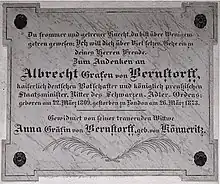 Du frommer und getreuer Knecht, du bist über Wenigem
getreu gewesen; Ich will dich über Viel setzen. Gehe ein zu
deines Herren Freude.
Zum Andenken an
Albrecht Grafen von Bernstorff,
kaiserlich deutschen Botschafter und königlich preussischen
Staatsminister, Ritter des Schwarzen-Adler-Ordens;
geboren am 22. März 1809, gestorben zu London am 26. März 1873.
Gewidmet von seiner trauernden Witwe
Anna Gräfin von Bernstorff, geb. von Könneritz.